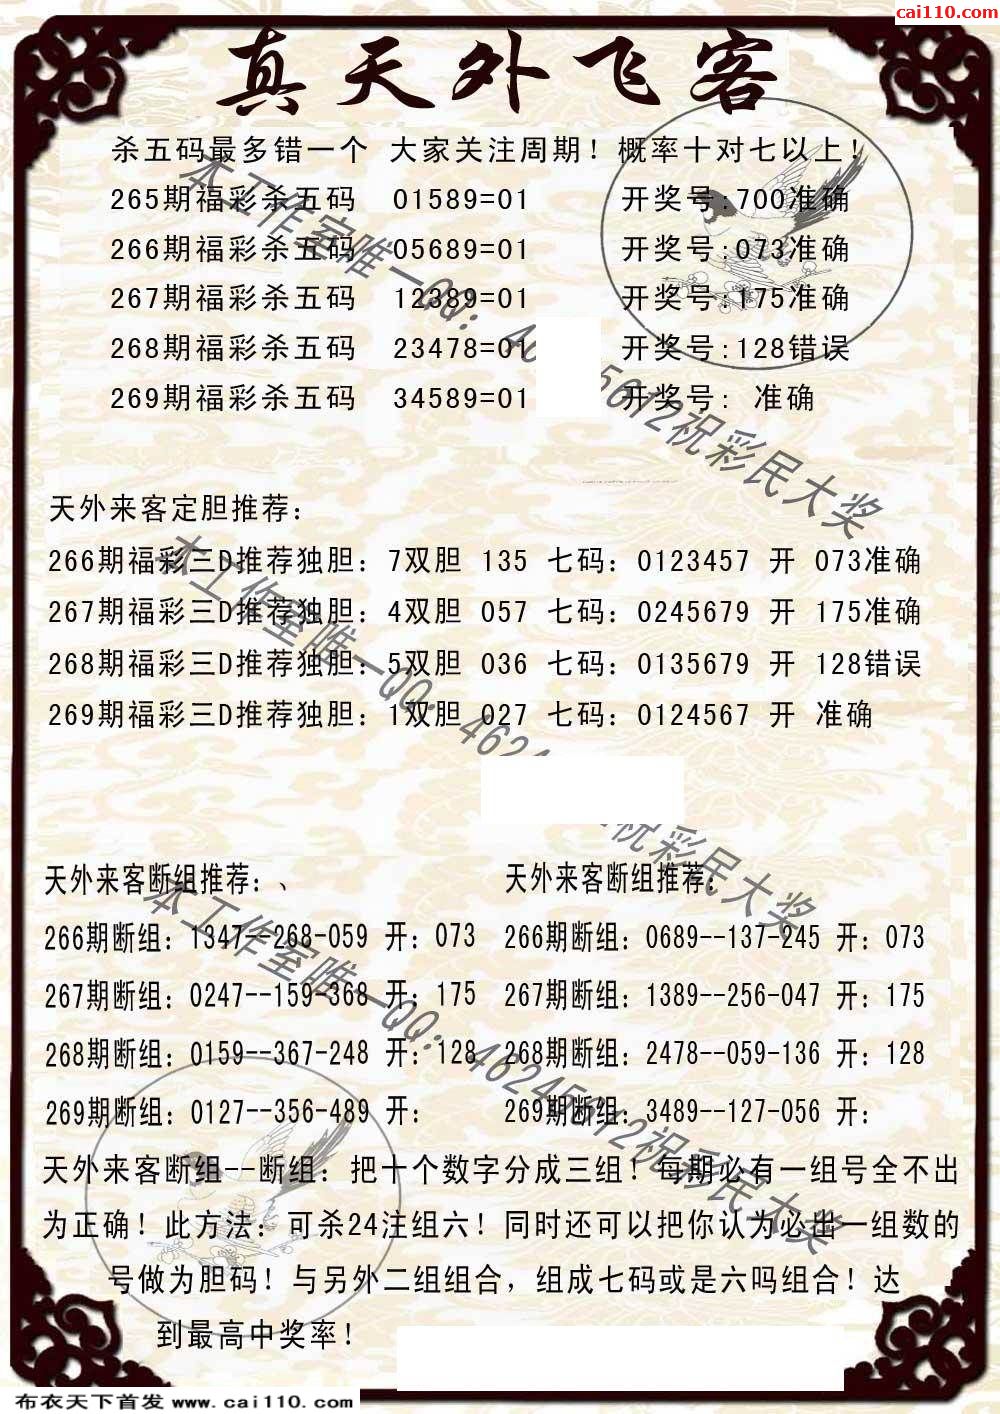 cai110.com
真天外飞客
杀五码最多错一个 大家关注周期！概率十对七以上！
265期福彩杀五码 01589=01 开奖号:700准确
266期福彩杀五码 05689=01 开奖号:073准确
267期福彩杀五码 12389=01 开奖号:175准确
268期福彩杀五码 23478=01 开奖号:128错误
269期福彩杀五码 34589=01 开奖号: 准确
天外来客定胆推荐：
266期福彩三D推荐独胆：7双胆 135 七码：0123457 开 073准确
267期福彩三D推荐独胆：4双胆 057 七码：0245679 开 175准确
268期福彩三D推荐独胆：5双胆 036 七码：0135679 开 128错误
269期福彩三D推荐独胆：1双胆 027 七码：0124567 开 准确
天外来客断组推荐：、 天外来客断组推荐：
266期断组：1347--268-059 开：073 266期断组：0689--137-245 开：073
267期断组：0247--159-368 开：175 267期断组：1389--256-047 开：175
268期断组：0159--367-248 开：128 268期断组：2478--059-136 开：128
269期断组：0127--356-489 开： 269期断组：3489--127-056 开：
天外来客断组--断组：把十个数字分成三组！每期必有一组号全不出
为正确！此方法：可杀24注组六！同时还可以把你认为必出一组数的
号做为胆码！与另外二组组合，组成七码或是六吗组合！达
到最高中奖率！
本工作室唯一QQ：46 5612祝彩民大奖
本工作室唯一QQ：4624 祝彩民大奖
本工作室唯一QQ：46245612祝彩民大奖
布衣天下首发 www.cai110.com